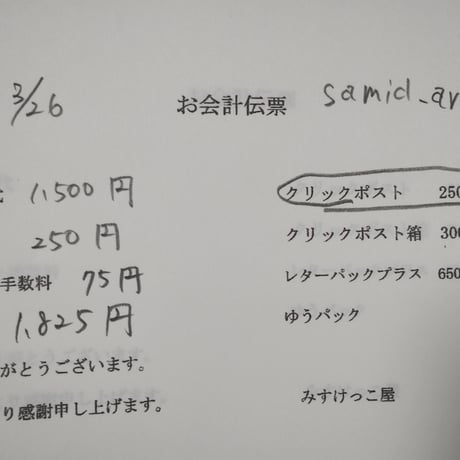 3/26 お会計伝票 samid_ar
1,500円 クリックポスト 250
250円 クリックポスト箱 300
手数料 75円 レターパックプラス 650
1,825円 ゆうパック
がとうございます。
り感謝申し上げます。 みすけっこ屋